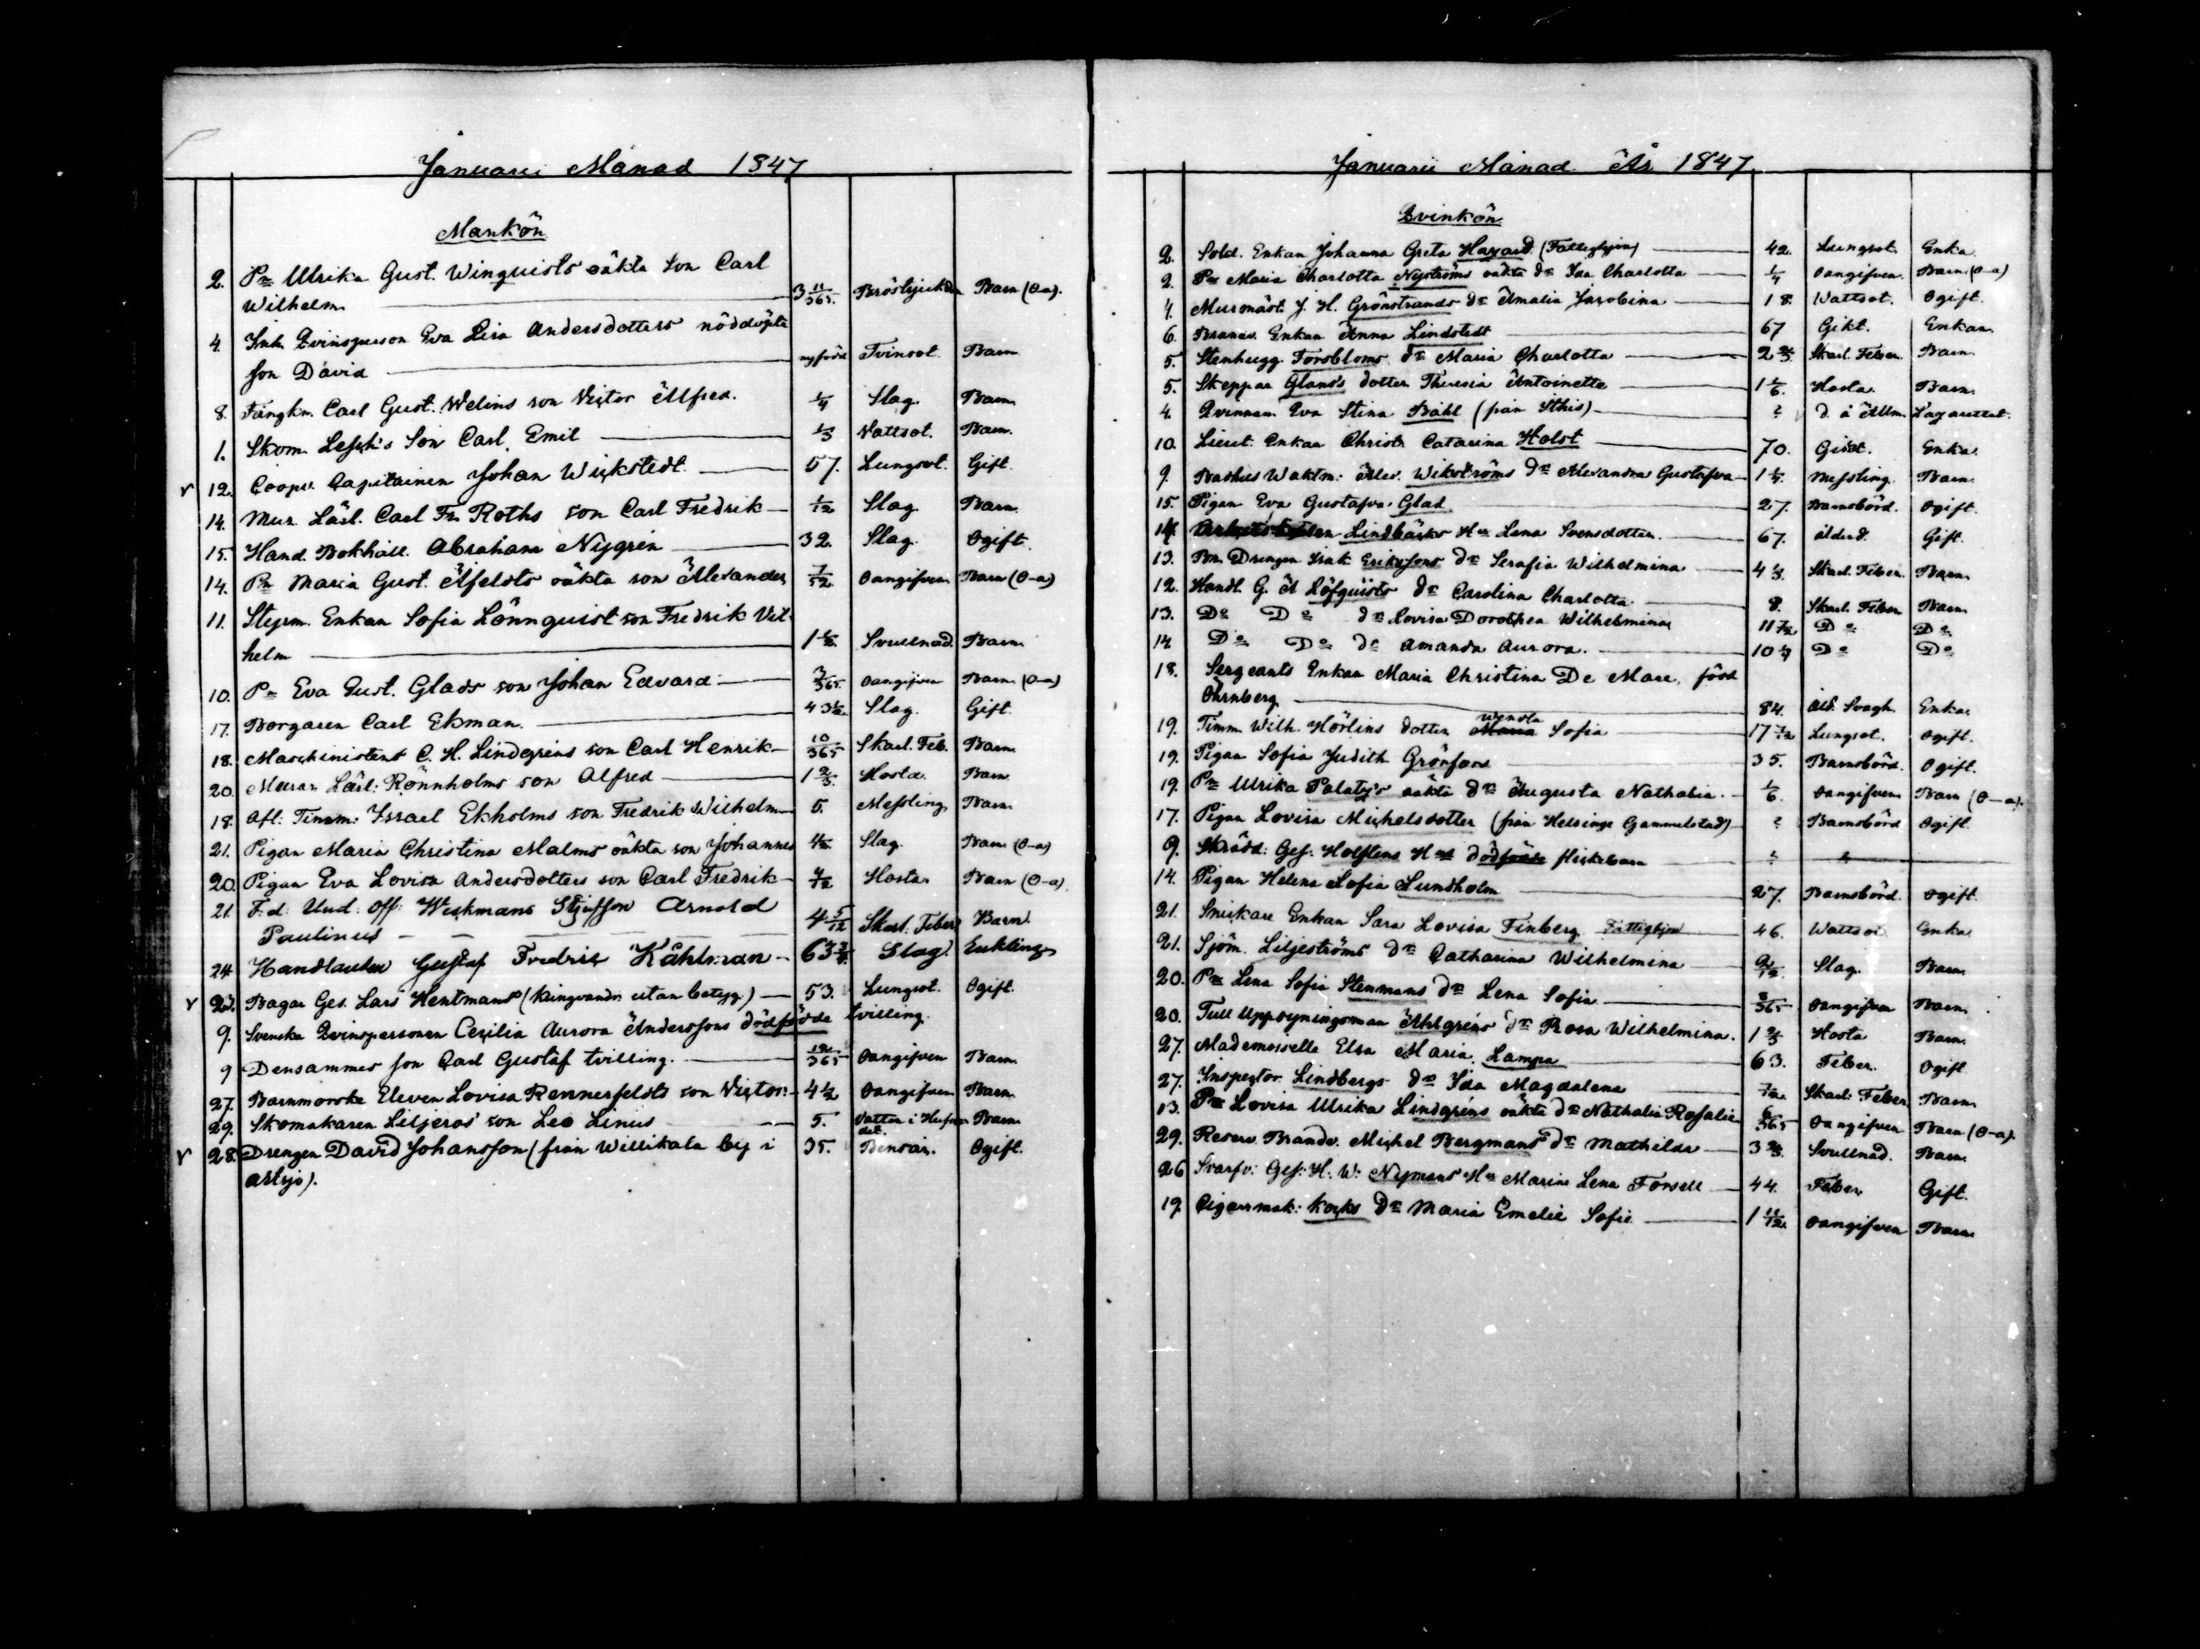 Januarii Månad 1847
Mankön
2. Pn Ulrika Gust. Winquists oäkta son Carl
Wilhelm 3 11/365. Bröstsjukdn Barn (O-a).
4. Inh. Qvinsperson Eva Lisa Andersdotters nöddöpte
son David nyfödd Tvinsot. Barn
8. Fångkn. Carl Gust. Welins son Victor Alfred. 1/4 Slag. Barn
1. Skom. Lesch's Son Carl Emil 1/3 Vattsot. Barn.
v 12. Coopv. Capitainen Johan Wickstedt. 57. Lungsot. Gift.
14. Mur. Lärl. Carl Fr. Roths son Carl Fredrik 1/12 Slag Barn.
15. Hand. Bokhåll. Abraham Nygrén 32. Slag. Ogift.
14. Pn Maria Gust. Alfelots oäkta son Alexander 7/52 Oangifven Barn (O-a)
11. Styrm. Enkan Sofia Lönnquist son Fredrik Vil-
helm 1 1/2. Svullnad. Barn.
10. Pn Eva Gust. Glads son Johan Edvard 3/365. Oangifven Barn. (O-a)
17. Borgaren Carl Ekman. 43 1/2 Slag. Gift.
18. Maschinistens C. H. Lindgréns son Carl Henrik 10/365 Skarl. Feb. Barn.
20. Murar. Lärl: Rönnholms son Alfred 1 2/3. Hosta. Barn
18. Afl: Timm: Israel Ekholms son Fredrik Wilhelm 5. Messling Barn.
21. Pigan Maria Christina Malms oäkta son Johannes 4/12 Slag. Barn (O-a)
20. Pigan Eva Lovisa Andersdotters son Carl Fredrik 4/12 Hosta. Barn (O-a).
21. F.d: Und: Off: Weckmans Styfson Arnold
Paulinus 4 5/12 Skarl. Feber Barn
24 Handlanden Gustaf Fredric Kåhlman 63 3/4. Slag. Enkling
v 23. Bagar Ges. Lars Hentmans (kringvandr. utan betyg) 53. Lungsot. Ogift.
9. Svenska Qvinspersonen Cecilia Aurora Anderssons dödfödde tvilling.
9 Densammes son Carl Gustaf tvilling. 12/365 Oangifven Barn.
27. Barnmorske Eleven Lovisa Rennerfeldts son Victor 4 1/2 Oangifven Barn.
29. Skomakaren Liljeros' son Leo Linus 5. Vatten i Hufvu- Barn
det.
v 28. Drengen David Johansson (från Willikala by i 35. Bensår. Ogift.
Artsjö).
Januarii Månad År 1847
Qvinkön
2. Sold. Enkan Johanna Greta Hazard. (Fattighjon) 42. Lungsot. Enka
2. Pn Maria Charlotta Nyströms oäkta dr Ida Charlotta 1/4 Oangifven. Barn. (O-a)
4. Murmäst. J. H. Grönstrands dr Amalia Jacobina 18. Wattsot. Ogift.
6. Branav. Enkan Anna Lindstedt 67 Gikt. Enkan.
5. Stenhugg. Forsbloms dr Maria Charlotta 2 2/3 Skarl. Feber. Barn.
5. Skeppar Glans's dotter Theresia Antoinette 1 1/6. Hosta. Barn
4. Qvinnan Eva Stina Båhl (från Sthis) ? d. å Allm. Lazarettet.
10. Lieut. Enkan Christ. Catarina Holst 70. Gikt. Enka.
9. Rådhus Waktm: Alex. Wikströms dr Alexandra Gustafva 1 1/4. Messling. Barn.
15. Pigan Eva Gustafva Glad. 27. Barnsbörd. Ogift.
14. Lindbäcks Hu Lena Svensdotter. 67. ålderd. Gift.
13. Bn. Drengen Isak Erikssons dr Serafia Wilhelmina 4 1/3. Skarl. Feber. Barn.
12. Handl. G. A Löfquists dr Carolina Charlotta. 8. Skarl. Feber Barn.
13. Do Do dr Lovisa Dorothea Wilhelmina 11 7/12 Do Do
14 Do Do dr Amanda Aurora. 10 1/4 Do Do
18. Sergeants Enkan Maria Christina De Mare, född
Öhrnberg 84. Ålf. Svagh. Enka.
19. Timm. Wilh. Hörlins dotter Maria Wendla Sofia 17 1/12 Lungsot. Ogift.
19. Pigan Sofia Judith Grönfors 35. Barnsbörd. Ogift.
19. Pn Ulrika Palatz's oäkta dr Augusta Nathalia. 1/6. Oangifven Barn (O-a).
17. Pigan Lovisa Michelsdotter (från Helsinge Gammelstad) ? Barnsbörd Ogift.
9. Skrädd: Ges. Holstens Hus dödfödde flickebarn
14. Pigan Helena Sofia Lundholm 27. Barnsbörd. Ogift.
21. Snickare Enkan Sara Lovisa Finberg Fattighjon 46. Wattsot Enka.
21. Sjöm. Liljeströms dr Catharina Wilhelmina 2/12 Slag. Barn.
20. Pn Lena Sofia Stenmans dr Lena Sofia 3/365 Oangifven Barn.
20. Tull Uppsyningsman Ahlgréns dr Rosa Wilhelmina. 1 2/3 Hosta Barn.
27. Mademoiselle Elsa Maria Lampa 63. Feber. Ogift
27. Inspector Lindbergs dr Ida Magdalena 7/12. Skarl. Feber. Barn.
13. Pn Lovisa Ulrika Lindgréns oäkta dr Nathalia Rosalie 6/365 Oangifven Barn (O-a).
29. Reserv. Brandv. Michel Bergmans dr Mathilda 3 2/3. Svullnad. Barn.
26 Svarfv: Ges: H. W: Nymans Hu Maria Lena Forsell 44. Feber. Gift.
19. Cigarrmak: Kocks dr Maria Emelie Sofie 1 11/12. Oangifven Barn.